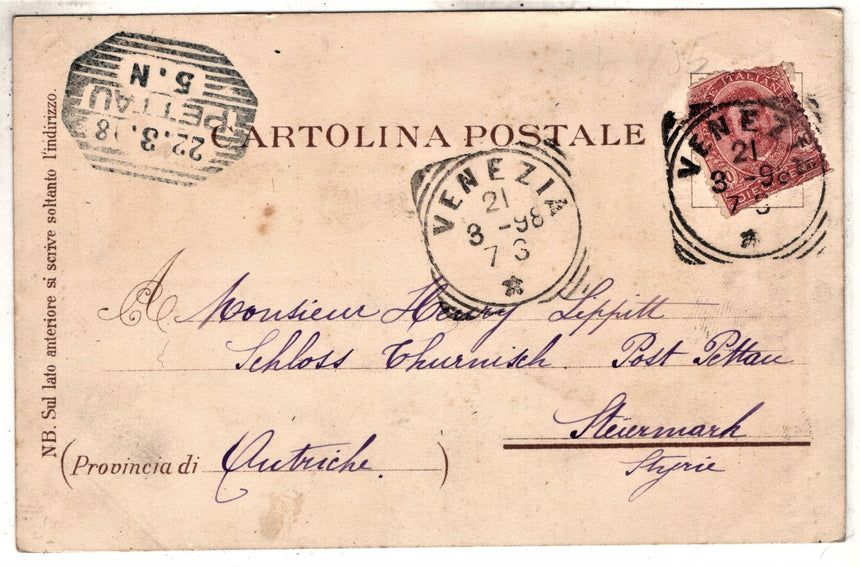 PETTAU
5.N
22.3.98
CARTOLINA POSTALE
VENEZIA
21
3 -98
7 S
VENEZIA
21
3 -98
7 S
NB. Sul lato anteriore si scrive soltanto l'indirizzo.
A Monsieur Henry Lippitt
Schloss Thurnisch. Post Pettau
Steiermark
(Provincia di Autriche.)
Styrie